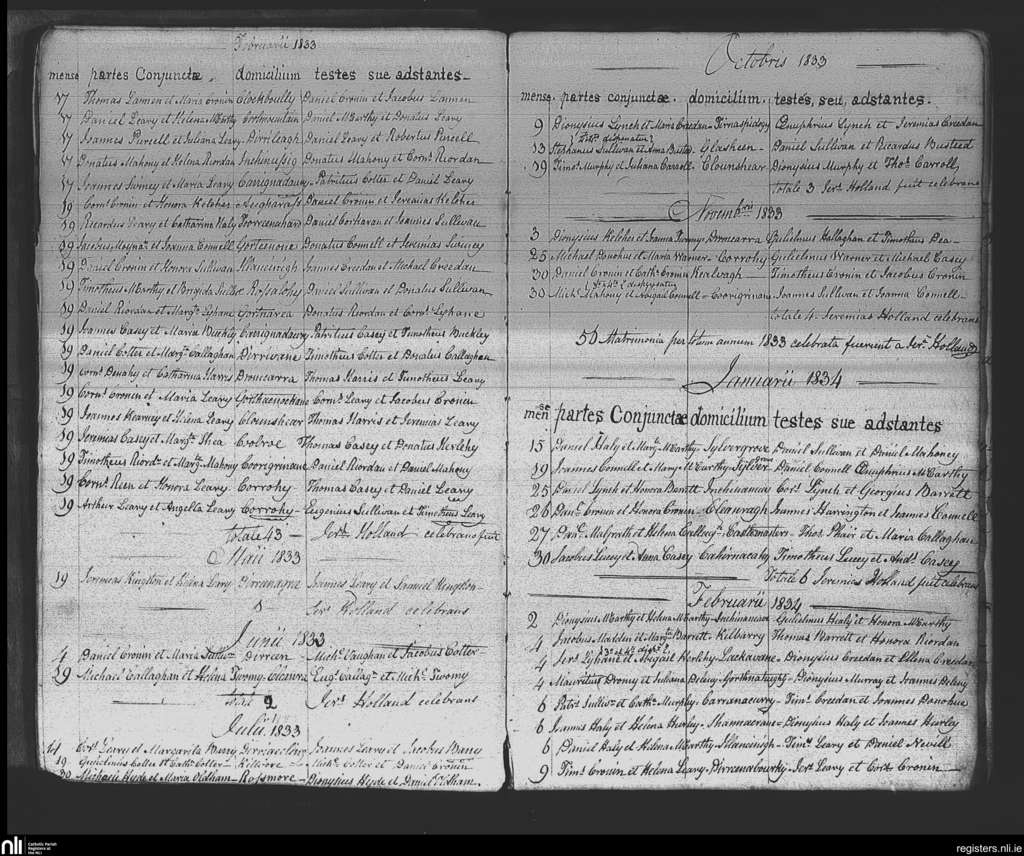 Februarii 1833
mense partes Conjunctæ. domicilium testes sue adstantes
17 Thomas Lamen et Maria Cronin Clochboully Daniel Cronin et Jacobus Lamen
17 Daniel Leary et Helena McCarthy Daniel McCarthy et Donatus Leary
17 Joannes Purcell et Juliana Leary Dirrileagh Daniel Leary et Robertus Purcell
17 Donatus Mahony et Helena Riordan Inchinussig Donatus Mahony et Corns. Riordan
17 Joannes Swiney et Maria Leary Carrignadaury Patritius Cotter et Daniel Leary
19 Corns. Cronin et Honora Kelcher Daniel Cronin et Jeremias Kelcher
19 Ricardus Leary et Catharina Haly Daniel Corkaran et Joannes Sullivan
19 Jacobus et Joanna Connell Donatus Connell et Jeremias Swiney
19 Daniel Cronin et Honora Sullivan Joannes Creedan et Michael Creedan
19 Timotheus McCarthy et Brigida Rossalohy Daniel Sullivan et Donatus Sullivan
19 Daniel Riordan et Margt. Lyhane Gortnarea Donatus Riordan et Corns. Lyhane
19 Joannes Casey et Maria Buckly Carrignadaury Patritius Casey et Timotheus Buckley
19 Daniel Cotter et Margt. Callaghan Dirrivane Timotheus Cotter et Donatus Callaghan
19 Corns. Denahy et Catharina Harris Dromcarra Thomas Harris et Timotheus Leary
19 Corns. Cronin et Maria Leary Corns. Leary et Jacobus Cronin
19 Joannes Kearney et Helena Leary Clounshear Thomas Harris et Jeremias Leary
19 Jeremias Casey et Margta. Shea Thomas Casey et Donatus Herlehy
19 Timotheus Riordn. et Margt. Mahony Coorigrinane Daniel Riordan et Daniel Mahony
19 Corns. et Honora Leary Corrohy Thomas Casey et Daniel Leary
19 Arthur Leary et Angella Leary Corrohy Eugenius Sullivan et Timotheus Leary
totale 43 Jers. Holland celebrans fuit
Maii 1833
19 Jeremias Kingston et Helena Leary Joannes Leary et Samuel Kingston
1 Jers. Holland celebrans
Junii 1833
4 Daniel Cronin et Maria Dirreen Michl. Vaughan et Jacobus Cotter
29 Richard Callaghan et Helena Twomy et Michl. Twomy
totale 2 Jers. Holland celebrans
Julii 1833
14 Cors. Leary et Margarita Barry Joannes Leary et Jacobus Barry
19 Gulielmus Cotter et Cathn. Cotter Killvore Michl. Cotter et Daniel Cronin
20 Michael Hyde et Maria Oldham Rossmore Dionysius Hyde et Daniel Oldham
Octobris 1833
mense. partes conjunctæ. domicilium. testes, seu, adstantes.
9 Dionysius Lynch et Maria Creedan Tirnaspidogy Onuphrius Lynch et Jeremias Creedan
13 Stephanus Sullivan et Anna Busteed Glasheen Daniel Sullivan et Ricardus Busteed
19 Timos. Murphy et Juliana Carroll Clounshear Dionysius Murphy et Thos. Carroll
Totale 3 Jers. Holland fuit celebrans
Novembris 1833
3 Dionysius Kelcher et Joanna Twomy Dromcarra Gulielmus Hallaghan et Timotheus Dea
25 Michael Donohue et Maria Warner Corrohy Gulielmus Warner et Michael Casey
30 Daniel Cronin et Cath. Cronin Kealvagh Timotheus Cronin et Jacobus Cronin
30 Michl. Mahony et Abigail Connell Coorigrinane Joannes Sullivan et Joanna Connell
totale 4. Jeremias Holland celebrans
50 Matrimonia per totum annum 1833 celebrata fuerunt a Jer. Holland
Januarii 1834
mense partes Conjunctæ domicilium testes sue adstantes
15 Daniel Haly et Margta. McCarthy Sylvergrove Daniel Sullivan et Daniel Mahoney
19 Joannes Connell et Mary McCarthy Sylver Daniel Connell Onuphrius McCarthy
25 Daniel Lynch et Honora Barrett Inchinamea Cors. Lynch et Georgius Barrett
26 Danl. Cronin et Honora Cronin Cleanragh Joannes Harrington et Joannes Connell
27 Danl. McGrath et Helena Castlemasters Thos. Phair et Maria Callaghan
30 Jacobus Lucey et Anna Casey Cahirnacahy Timotheus Lucey et Andr. Casey
Totale 6 Jeremias Holland fuit celebrans
Februarii 1834
2 Dionysius McCarthy et Helena McCarthy Inchinanessa Gulielmus Healy et Honora McCarthy
4 Jacobus Madden et Margta. Barrett Kilbarry Thomas Barrett et Honora Riordan
4 Jers. Lyhane et Abigail Herlehy Lackavane Dionysius Creedan et Ellena Creedan
4 Mauritius Droney et Juliana Deleny Gortknataughy Dionysius Murray et Joannes Deleny
6 Patrs. Sullivn. et Cathe. Murphy Carranacurry Timos. Creedan et Joannes Donohue
6 Joannes Haly et Helena Hurley Shannacrane Dionysius Haly et Joannes Hurley
6 Daniel Haly et Helena McCarthy Timos. Leary et Daniel Nevill
9 Tims. Cronin et Helena Leary Dirreenabourky Jers. Leary et Cors. Cronin
nli Catholic Parish Registers at the NLI
registers.nli.ie